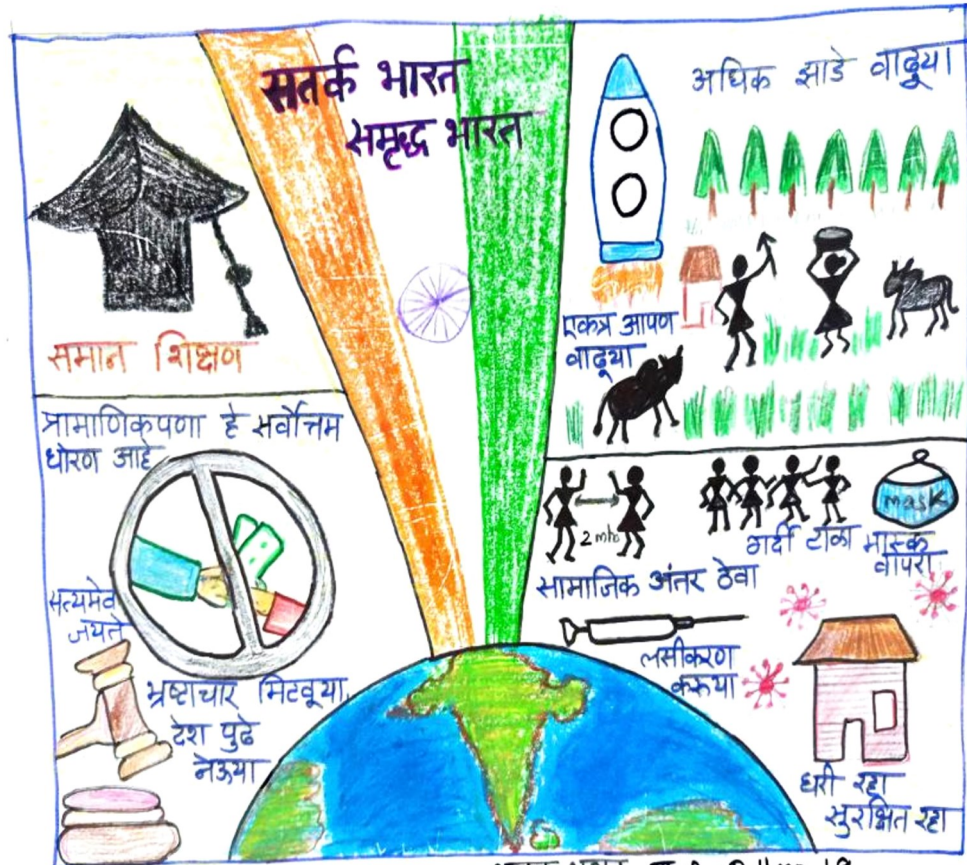 सतर्क भारत
समृद्ध भारत
समान शिक्षण
अधिक झाडे वाढूया
एकत्र आपण
वाढूया
प्रामाणिकपणा हे सर्वोत्तम
धोरण आहे
सत्यमेव
जयते
भ्रष्टाचार मिटवूया,
देश पुढे
नेऊया
गर्दी टाळा
mask
मास्क
वापरा
सामाजिक अंतर ठेवा
लसीकरण
करूया
घरी रहा
सुरक्षित रहा